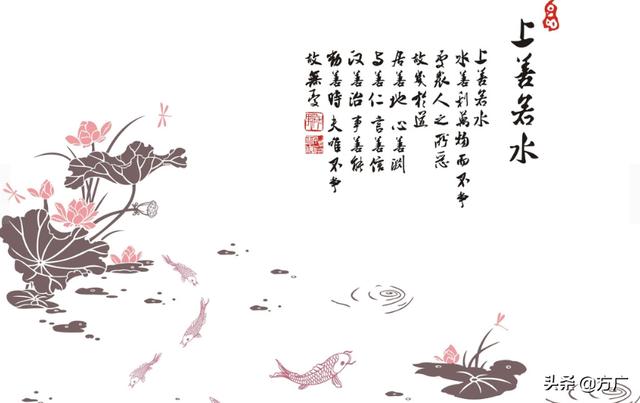 上善若水
上善若水
水善利萬物而不争
處衆人之所惡
故幾於道
居善地 心善淵
与善仁 言善信
政善治 事善能
動善時 夫唯不争
故無憂
头条@方广